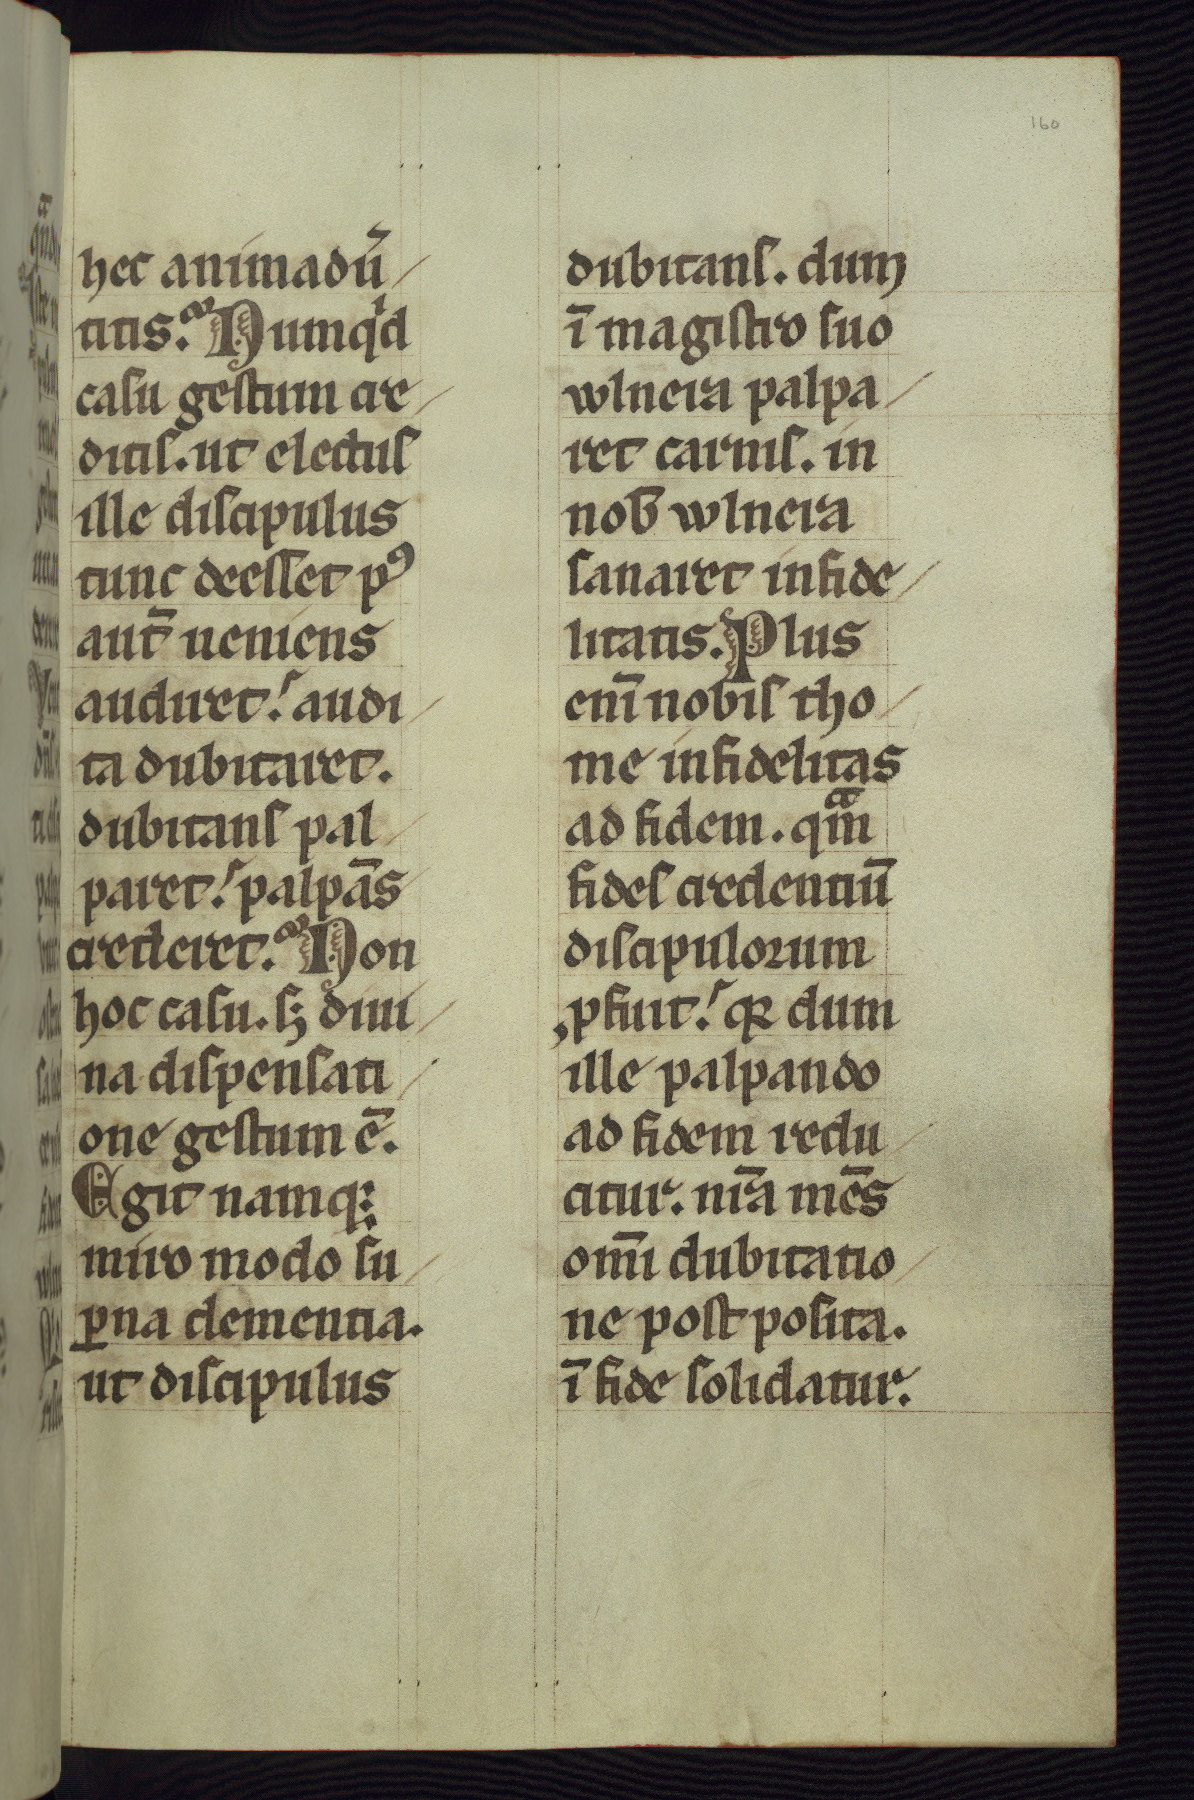 160
hec animadū
titis. Numqͥd
casu gestum cre
ditis. ut electus
ille discipulus
tunc deesset pꝰ
aut̄ ueniens
audiret. audi
ta dubitaret.
dubitans pal
paret. palpās
crederet. Non
hoc casu. sꝫ diui
na dispensati
one gestum ē.
Egit namqꝫ
miro modo su
ꝑna clementia.
ut discipulus
dubitans. dum
ī magistro suo
wlnera palpa
ret carnis. in
nob̄ wlnera
sanaret infide
litatis. Plus
eni̅ nobis tho
me infidelitas
ad fidem. qᵃ̄m
fides credentiū
discipulorum
ꝓfuit. qꝛ dum
ille palpando
ad fidem redu
citur. nr̄a mēs
om̄i dubitatio
ne postposita.
ī fide solidatur.